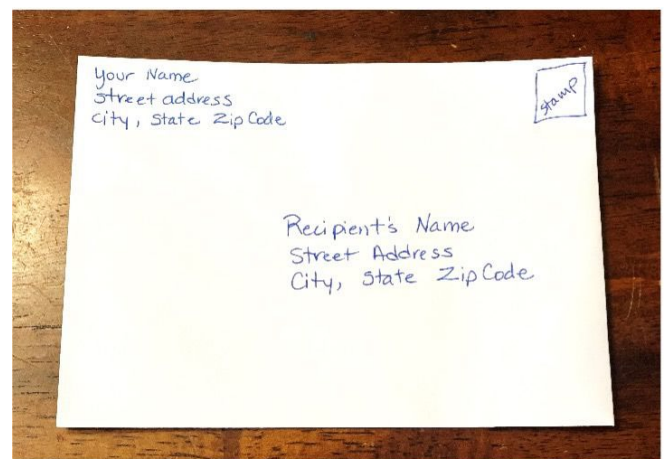 Your Name
Street address
City, State Zip Code
stamp
Recipient's Name
Street Address
City, State Zip Code